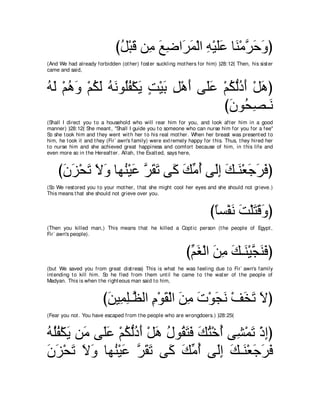 (وَحَرَّمْنَا عَلَيْهِ الْمَرَاضِعَ مِن قَبْلُ)
(And We had already forbidden (other) foster suckling mothers for him) (28:12) Then, his sister
came and said,
هَلْ أَدُلُّكُمْ عَلَى أَهْلِ بَيْتٍ يَكْفُلُونَهُ لَكُمْ وَهُمْ لَهُ
نَـصِحُونَ)
(Shall I direct you to a household who will rear him for you, and look after him in a good
manner) (28:12) She meant, "Shall I guide you to someone who can nurse him for you for a fee"
So she took him and they went with her to his real mother. When her breast was presented to
him, he took it and they (Fir`awn's family) were extremely happy for this. Thus, they hired her
to nurse him and she achieved great happiness and comfort because of him, in this life and
even more so in the Hereafter. Allah, the Exalted, says here,
(فَرَجَعْنَـكَ إِلَى أُمِّكَ كَى تَقَرَّ عَيْنُهَا وَلاَ تَحْزَنَ)
(So We restored you to your mother, that she might cool her eyes and she should not grieve.)
This means that she should not grieve over you.
(وَقَتَلْتَ نَفْساً)
(Then you killed man,) This means that he killed a Coptic person (the people of Egypt,
Fir`awn's people).
(فَنَجَّيْنَـكَ مِنَ الْغَمِّ)
(but We saved you from great distress) This is what he was feeling due to Fir`awn's family
intending to kill him. So he fled from them until he came to the water of the people of
Madyan. This is when the righteous man said to him,
(لاَ تَخَفْ نَجَوْتَ مِنَ الْقَوْمِ الظَّـلِمِينَ)
(Fear you not. You have escaped from the people who are wrongdoers.) (28:25)
(إِذْ تَمْشِى أُخْتُكَ فَتَقُولُ هَلْ أَدُلُّكُمْ عَلَى مَن يَكْفُلُهُ
فَرَجَعْنَـكَ إِلَى أُمِّكَ كَى تَقَرَّ عَيْنُهَا وَلاَ تَحْزَنَ